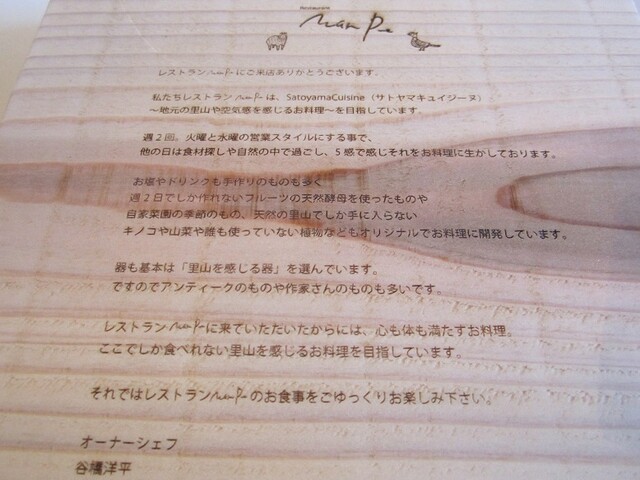 Restaurant
Nan Pe
レストランNan Peにご来店ありがとうございます。
私たちレストランNan Peは、SatoyamaCuisine（サトヤマキュイジーヌ）
〜地元の里山や空気感を感じるお料理〜を目指しています。
週2回。火曜と水曜の営業スタイルにする事で、
他の日は食材探しや自然の中で過ごし、5感で感じそれをお料理に生かしております。
お塩やドリンクも手作りのものも多く
週2日でしか作れないフルーツの天然酵母を使ったものや
自家菜園の季節のもの、天然の里山でしか手に入らない
キノコや山菜や誰も使っていない植物などもオリジナルでお料理に開発しています。
器も基本は「里山を感じる器」を選んでいます。
ですのでアンティークのものや作家さんのものも多いです。
レストランNan Peに来ていただいたからには、心も体も満たすお料理。
ここでしか食べれない里山を感じるお料理を目指しています。
それではレストランNan Peのお食事をごゆっくりお楽しみ下さい。
オーナーシェフ
谷欄洋平